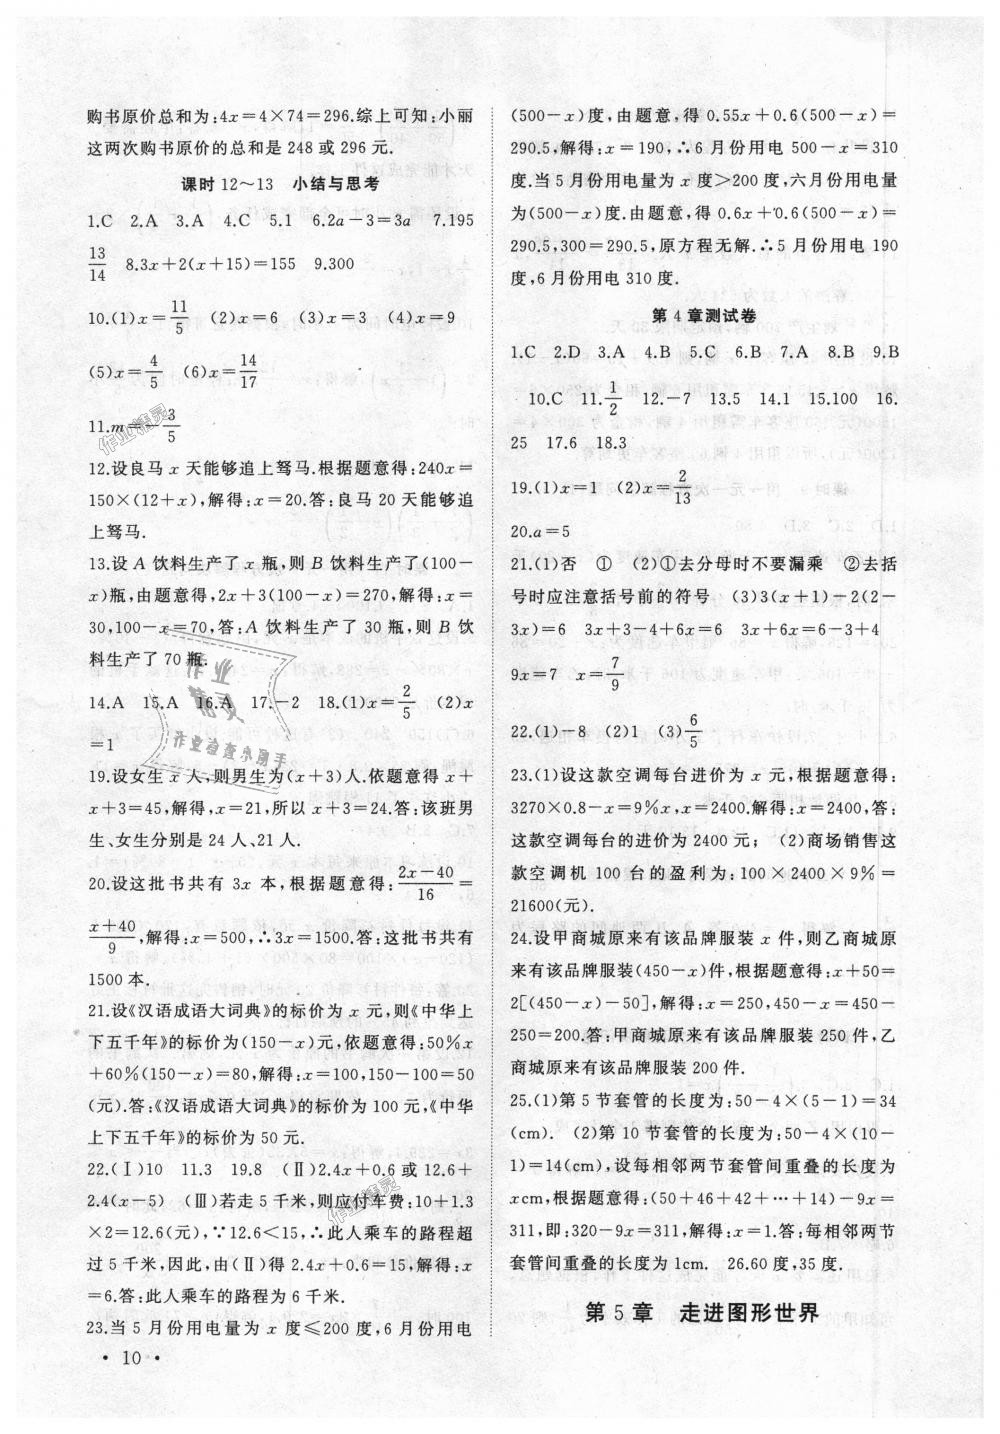 购书原价总和为:4x=4×74=296.综上可知:小丽
这两次购书原价的总和是 248 或 296 元.
课时 12～13　小结与思考
1.C　2.A　3.A　4.C　5.1　6.2a-3=3a　7.195
13/14　8.3x+2(x+15)=155　9.300
10.(1)x=11/5　(2)x=6　(3)x=4　(4)x=9
(5)x=4/5　(6)x=14/17
11.m=-3/5
12.设良马 x 天能够追上驽马.根据题意得:240x=
150×(12+x),解得:x=20.答:良马 20 天能够追
上驽马.
13.设 A 饮料生产了 x 瓶,则 B 饮料生产了(100-
x)瓶,由题意得,2x+3(100-x)=270,解得:x=
30,100-x=70,答:A 饮料生产了 30 瓶,则 B 饮
料生产了 70 瓶.
14.A　15.A　16.A　17.-2　18.(1)x=2/5　(2)x
=1
19.设女生 x 人,则男生为(x+3)人.依题意得 x+
x+3=45,解得,x=21,所以 x+3=24.答:该班男
生、女生分别是 24 人、21 人.
20.设这批书共有 3x 本,根据题意得:(2x-40)/16=
(x+40)/9,解得:x=500,∴3x=1500.答:这批书共有
1500 本.
21.设《汉语成语大词典》的标价为 x 元,则《中华上
下五千年》的标价为(150-x)元,依题意得:50%x
+60%(150-x)=80,解得:x=100,150-100=50
(元).答:《汉语成语大词典》的标价为 100 元,《中华
上下五千年》的标价为 50 元.
22.(Ⅰ)10　11.3　19.8　(Ⅱ)2.4x+0.6或12.6+
2.4(x-5)　(Ⅲ)若走 5 千米,则应付车费:10+1.3
×2=12.6(元),∵12.6<15,∴此人乘车的路程超
过 5 千米,因此,由(Ⅱ)得 2.4x+0.6=15,解得:x
=6.答:此人乘车的路程为 6 千米.
23.当 5 月份用电量为 x 度≤200 度,6 月份用电
(500-x)度,由题意,得 0.55x+0.6(500-x)=
290.5,解得:x=190,∴6 月份用电 500-x=310
度.当 5 月份用电量为 x 度>200 度,六月份用电量
为(500-x)度,由题意,得 0.6x+0.6(500-x)=
290.5,300=290.5,原方程无解.∴5 月份用电 190
度,6 月份用电 310 度.
第 4 章测试卷
1.C　2.D　3.A　4.B　5.C　6.B　7.A　8.B　9.B
10.C　11.1/2　12.-7　13.5　14.1　15.100　16.
25　17.6　18.3
19.(1)x=1　(2)x=2/13
20.a=5
21.(1)否　①　(2)①去分母时不要漏乘　②去括
号时应注意括号前的符号　(3)3(x+1)-2(2-
3x)=6　3x+3-4+6x=6　3x+6x=6-3+4
9x=7　x=7/9
22.(1)-8　(2)1　(3)6/5
23.(1)设这款空调每台进价为 x 元,根据题意得:
3270×0.8-x=9%x,x=2400.解得:x=2400,答:
这款空调每台的进价为 2400 元;　(2)商场销售这
款空调机 100 台的盈利为:100×2400×9%=
21600(元).
24.设甲商城原来有该品牌服装 x 件,则乙商城原
来有该品牌服装(450-x)件,根据题意得:x+50=
2[(450-x)-50],解得:x=250,450-x=450-
250=200.答:甲商城原来有该品牌服装 250 件,乙
商城原来有该品牌服装 200 件.
25.(1)第 5 节套管的长度为:50-4×(5-1)=34
(cm).　(2)第 10 节套管的长度为:50-4×(10-
1)=14(cm),设每相邻两节套管间重叠的长度为
xcm,根据题意得:(50+46+42+…+14)-9x=
311,即:320-9x=311,解得:x=1.答:每相邻两节
套管间重叠的长度为 1cm.　26.60 度,35 度
第 5 章　走进图形世界
· 10 ·
作业精灵
作业
精灵
作业检查小助手
作业精灵